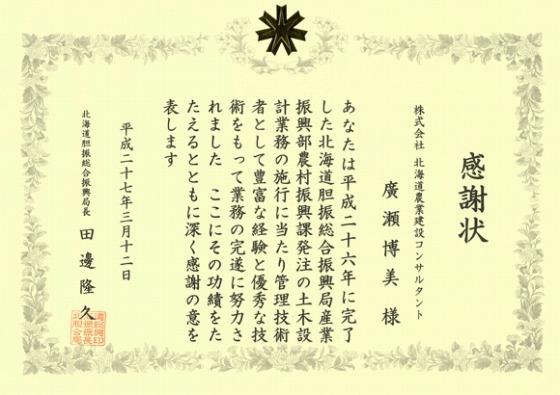 感謝状
株式会社 北海道農業建設コンサルタント
廣瀬博美 様
あなたは平成二十六年に完了
した北海道胆振総合振興局産業
振興部農村振興課発注の土木設
計業務の施行に当たり管理技術
者として豊富な経験と優秀な技
術をもって業務の完遂に努力さ
れました ここにその功績をた
たえるとともに深く感謝の意を
表します
平成二十七年三月十二日
北海道胆振総合振興局長 田邊隆久